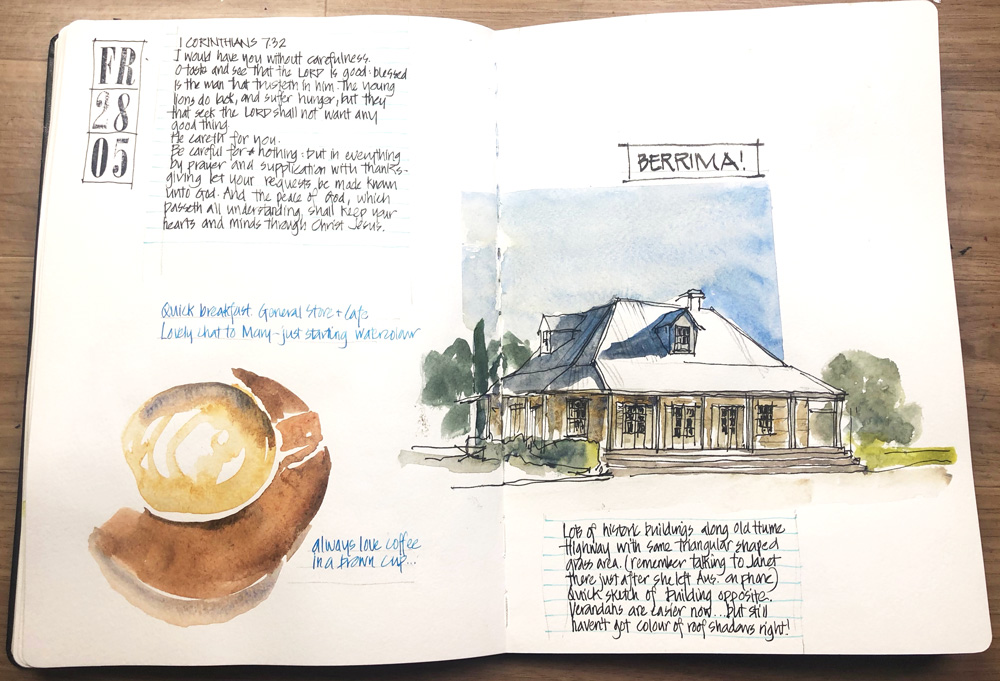 FR
28
05
1 CORINTHIANS 7:32
I would have you without carefulness.
O taste and see that the LORD is good: blessed
is the man that trusteth in him. The young
lions do lack, and suffer hunger, but they
that seek the LORD shall not want any
good thing.
He careth for you.
Be careful for nothing: but in everything
by prayer and supplication with thanks-
giving let your requests be made known
unto God. And the peace of God, which
passeth all understanding, shall keep your
hearts and minds through Christ Jesus.
Quick breakfast: General Store + Cafe
Lovely chat to Mary - just starting watercolour
always love coffee
in a brown cup...
BERRIMA!
Lots of historic buildings along Old Hume
Highway with same triangular shaped
grass area. (remember talking to Janet
there just after she left Aus. on phone)
Quick sketch of building opposite.
Verandahs are easier now... but still
haven't got colour of roof shadows right!